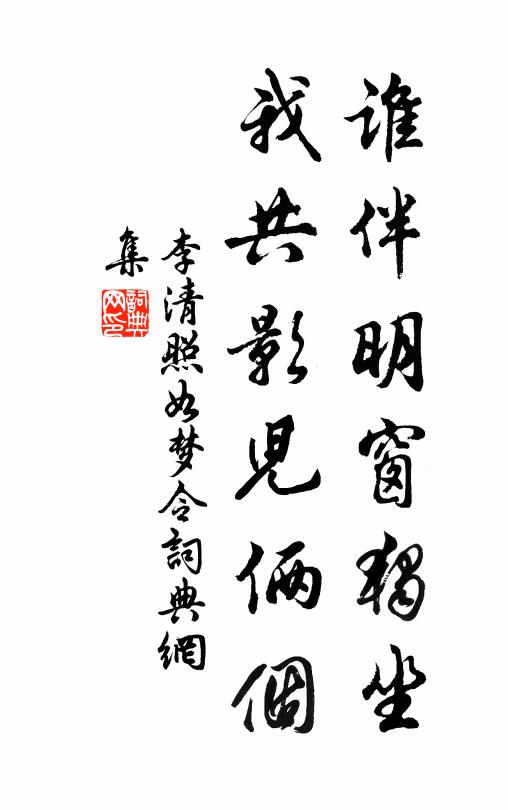 誰伴明窗獨坐
我共影兒倆個
李清照如梦令詞典網
集
詞典
网印